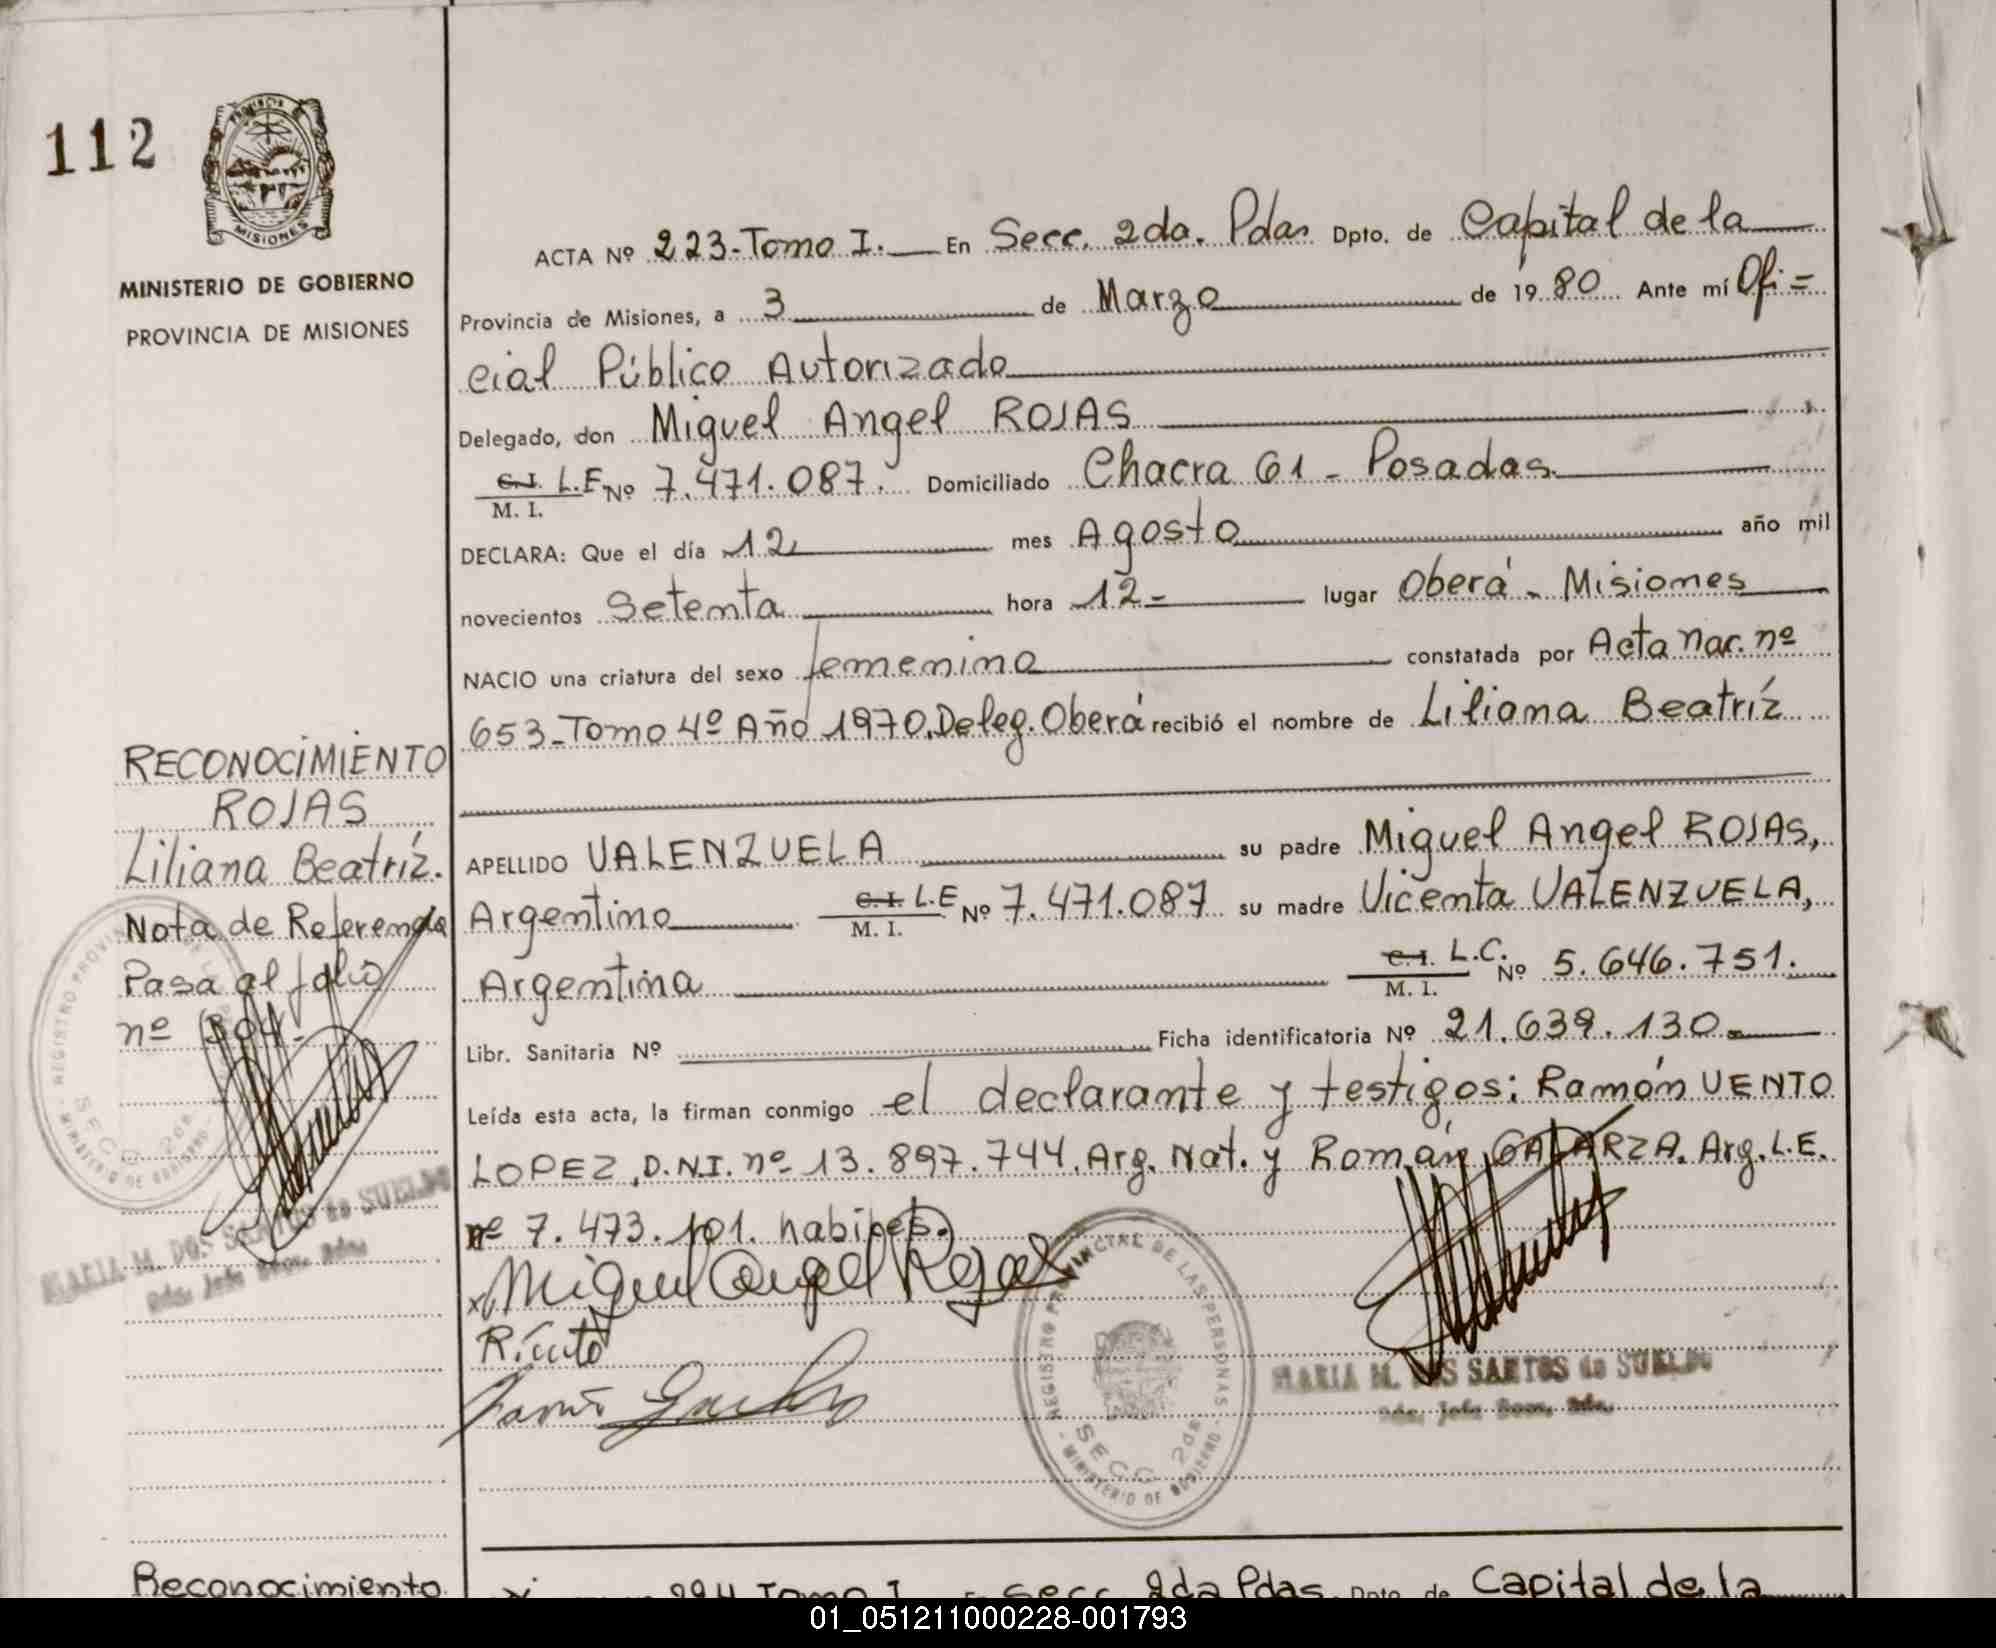 112
PROVINCIA
MISIONES
MINISTERIO DE GOBIERNO
PROVINCIA DE MISIONES
ACTA Nº 223-Tomo I. En Secc. 2da. Pdas Dpto. de Capital de la
Provincia de Misiones, a 3 de Marzo de 1980 Ante mí Ofi=
cial Público Autorizado
Delegado, don Miguel Angel ROJAS
C.I. L.E Nº 7.471.087. Domiciliado Chacra 61 - Posadas
M. I.
DECLARA: Que el día 12 mes Agosto año mil
novecientos Setenta hora 12- lugar Oberá - Misiones
NACIO una criatura del sexo femenino constatada por Acta Nac. nº
653-Tomo 4º Año 1970. Deleg. Oberá recibió el nombre de Liliana Beatríz
APELLIDO VALENZUELA su padre Miguel Angel ROJAS,
Argentino C.I. L.E Nº 7.471.087 su madre Vicenta VALENZUELA,
M. I.
Argentina C.I. L.C. Nº 5.646.751.
M. I.
Libr. Sanitaria Nº Ficha identificatoria Nº 21.639.130-
Leída esta acta, la firman conmigo el declarante y testigos: Ramón VENTO
LOPEZ, D.N.I. nº 13.897.744, Arg. Nat. y Román GALARZA. Arg. L.E.
nº 7.473.101. habiles.
Miguel Angel Rojas
REGISTRO PROVINCIAL DE LAS PERSONAS
SECC 2da
MINISTERIO DE GOBIERNO
MARIA M. DOS SANTOS de SUELDO
RECONOCIMIENTO
ROJAS
Liliana Beatríz.
Nota de Referencia
Pasa al folio
nº 304.
REGISTRO PROVINCIAL DE LAS
SECC 2da
MINISTERIO DE GOBIERNO
MARIA M. DOS SANTOS de SUELDO
Reconocimiento
224 Tomo I En Secc 2da Pdas. Dpto. de Capital de la
01_051211000228-001793